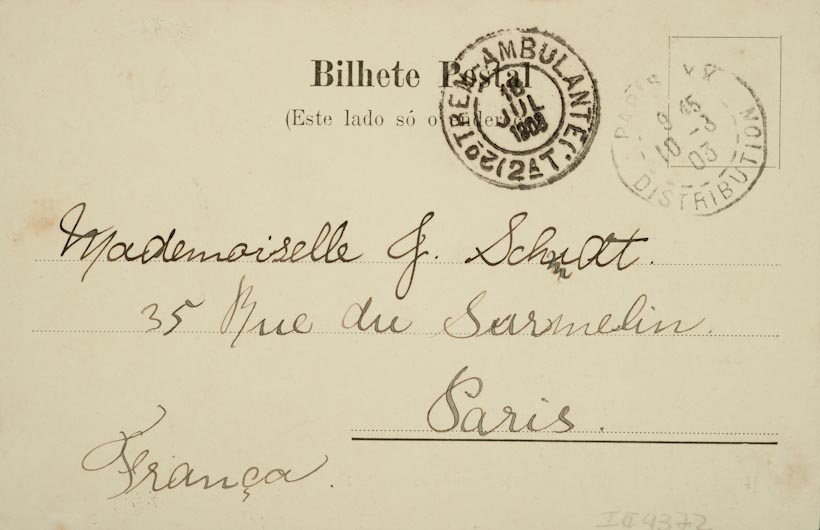 Bilhete Postal
(Este lado só o
2º TREM AMBULANTE (2A T.)
18
JUL
1903
PARIS XX
9 45
10 -8
03
DISTRIBUTION
Mademoiselle J. Schmidt.
35 Rue du Surmelin.
Paris.
França.
4372